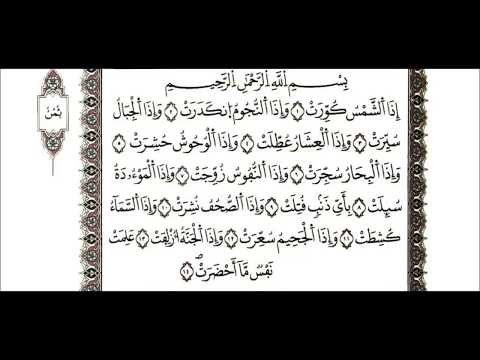 ثُمُنْ
بِسْمِ اِ۬للَّهِ اِ۬لرَّحْمَٰنِ اِ۬لرَّحِيمِ
إِذَا اَ۬لشَّمْسُ كُوِّرَتْ ١ وَإِذَا اَ۬لنُّجُومُ اُ۪نكَدَرَتْ ٢ وَإِذَا اَ۬لْجِبَالُ
سُيِّرَتْ ٣ وَإِذَا اَ۬لْعِشَارُ عُطِّلَتْ ٤ وَإِذَا اَ۬لْوُحُوشُ حُشِرَتْ ٥
وَإِذَا اَ۬لْبِحَارُ سُجِّرَتْ ٦ وَإِذَا اَ۬لنُّفُوسُ زُوِّجَتْ ٧ وَإِذَا اَ۬لْمَوْءُۥدَةُ
سُئِلَتْ ٨ بِأَيِّ ذَنۢبٍ قُتِلَتْ ٩ وَإِذَا اَ۬لصُّحُفُ نُشِرَتْ ١٠ وَإِذَا اَ۬لسَّمَآءُ
كُشِطَتْ ١١ وَإِذَا اَ۬لْجَحِيمُ سُعِّرَتْ ١٢ وَإِذَا اَ۬لْجَنَّةُ أُزْلِفَتْ ١٣ عَلِمَتْ
نَفْسٌ مَّآ أَحْضَرَتْ ١٤